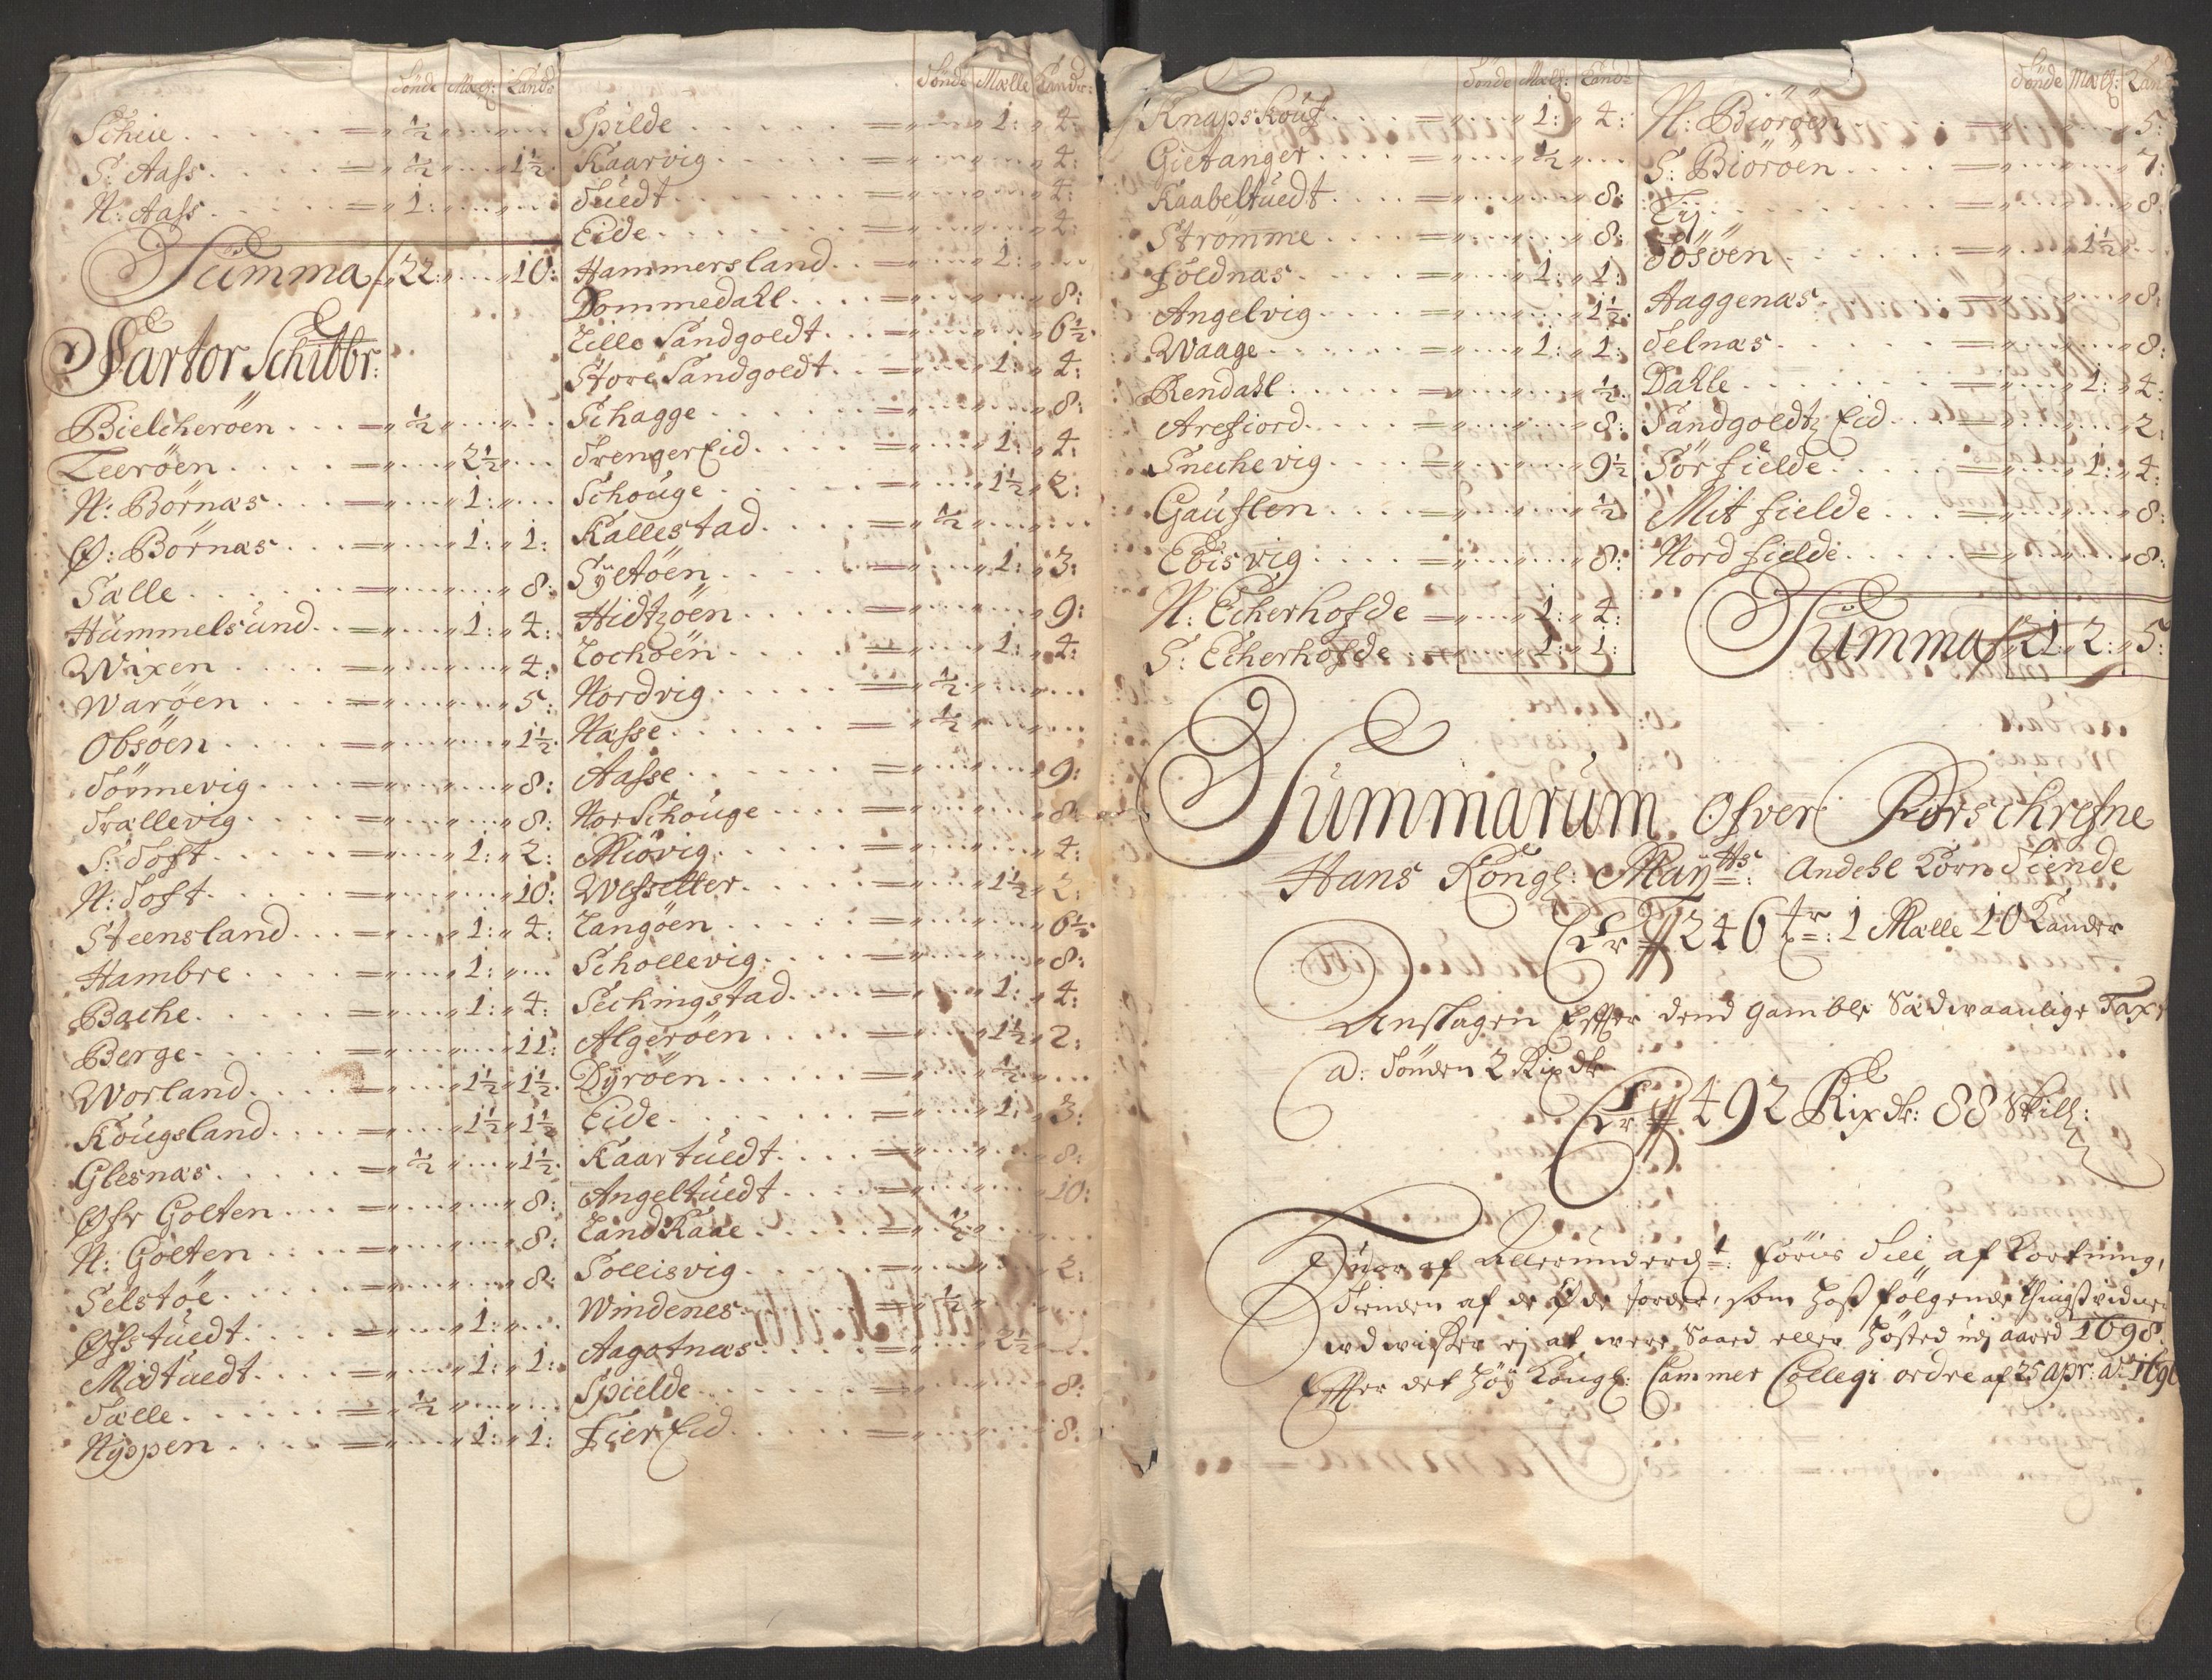 Tönde Mælj: Kand:
Schie . . . . = „ ½ „ .... „ ...
S: Aass . . . . = „ ½ „ .... „ 1½.
N: Aass . . . . = „ 1: „ .... „ ...
Summa „ 22: „ .... „ 10:
Sartor Schibbr:
Bielcheröen . . . = „ ½ „ .... „ ...
Leeröen . . . . = „ .... „ 2½ „ ...
N: Börnæs . . . = „ .... „ 1: „ ...
Ø: Börnæs . . . = „ .... „ 1: „ 1:
Sælle . . . . = „ .... „ .... „ 8:
Hummelsund . . = „ .... „ 1: „ 4:
Wixen . . . . = „ .... „ .... „ 4:
Waröen . . . = „ .... „ .... „ 5:
Obsöen . . . . = „ .... „ .... „ 1½.
Tönnevig . . . . = „ .... „ .... „ 8:
Trællevig . . . . = „ .... „ .... „ 8:
S: Toft . . . . = „ .... „ 1: „ 2:
N: Toft . . . . = „ .... „ .... „ 10:
Steensland . . . = „ .... „ 1: „ 4:
Hambre . . . . = „ .... „ 1: „ ...
Bache . . . . = „ .... „ 1: „ 4:
Berge . . . . = „ .... „ .... „ 11:
Worland . . . . = „ .... „ 1½ „ 1½.
Kougsland . . . = „ .... „ 1½ „ 1½
Glesnæs . . . . = „ ½ „ .... „ 1½.
Øfr Golten . . . = „ .... „ .... „ 8:
N: Golten . . . = „ .... „ .... „ 8:
Selstöe . . . . = „ .... „ .... „ 8:
Øfstuedt . . . . = „ .... „ 1: „ ...
Midtuedt . . . . = „ .... „ 1: „ 1:
Tælle . . . . = „ ½ „ .... „ ...
Nyppen . . . . = „ .... „ 1: „ 1:
Tönde Mælle Kander:
Spilde . . . . = „ .... „ 1: „ 4:
Kaarvig . . . . = „ .... „ .... „ 4:
Tuedt . . . . = „ .... „ .... „ 4:
Eide . . . . = „ .... „ .... „ 4:
Hammersland . . = „ .... „ 1: „ ...
Dommedahl . . . = „ .... „ .... „ 8:
Lille Sandgoldt . . = „ .... „ .... „ 6½.
Store Sandgoldt . . = „ .... „ 1: „ 4:
Schagge . . . . = „ .... „ .... „ 8:
Trenger Eid . . . = „ .... „ 1: „ 4:
Schouge . . . . = „ .... „ 1½ „ 2:
Kallestad . . . . = „ ½ „ .... „ ...
Syltöen . . . . = „ .... „ 1: „ 3:
Hidtzöen . . . . = „ .... „ .... „ 9:
Lochöen . . . . = „ .... „ 1: „ 4:
Nordvig . . . . = „ ½ „ .... „ ...
Næsse . . . . = „ ½ „ .... „ ...
Aasse . . . . = „ .... „ .... „ 9:
Nor Schouge . . . = „ .... „ .... „ 8:
Miövig . . . . = „ .... „ .... „ 4:
Wessetter . . . . = „ .... „ 1½ „ 2:
Langöen . . . . = „ .... „ .... „ 6½.
Schollevig . . . . = „ .... „ .... „ 8:
Sechingstad . . . = „ .... „ 1: „ 4:
Algeröen . . . . = „ .... „ 1½ „ 2:
Dyröen . . . . = „ .... „ ½ „ ...
Eide . . . . = „ .... „ 1: „ 3:
Kaartuedt . . . = „ .... „ .... „ 8:
Angeltuedt . . . = „ .... „ .... „ 10:
Land Raae . . . = „ ½ „ .... „ ...
Sollisvig . . . . = „ .... „ .... „ 2:
Windenes . . . . = „ ½ „ .... „ ...
Aagotnæs . . . . = „ .... „ 2½ „ ...
Spielde . . . . = „ .... „ .... „ 8:
Fier Eid . . . . = „ .... „ .... „ 8:
Tönde Mælj: Kand:
Knapskoug . . . = „ .... „ 1: „ 4:
Gietanger . . . = „ .... „ ½ „ ...
Kaabeltuedt . . . = „ .... „ .... „ 8:
Strömme . . . . = „ .... „ .... „ 8:
Foldnæs . . . . = „ .... „ 1: „ 1:
Angelvig . . . . = „ .... „ .... „ 1½.
Waage . . . . = „ .... „ 1: „ 1:
Rendahl . . . . = „ .... „ .... „ ½.
Arefiord . . . . = „ .... „ .... „ 8:
Snechevig . . . . = „ .... „ .... „ 9½
Gauslen . . . . = „ .... „ .... „ ½
Ebisvig . . . . = „ .... „ .... „ 8:
N: Echerhofde = „ .... „ 1: „ 4:
S: Echerhofde . = „ .... „ 1: „ 1:
Tönde Mælj: Kan
N: Biöröen . . . = „ .... „ .... „ 5:
S: Biöröen . . . = „ .... „ .... „ 7:
Lij . . . . = „ .... „ .... „ 8:
Tösöen . . . . = „ .... „ 1½ „ ...
Haggenæs . . . = „ .... „ .... „ 8:
Telnæs . . . . = „ .... „ .... „ 8:
Dahle . . . . = „ .... „ 1: „ 4:
Sandgoldtz Eid . . = „ .... „ .... „ 2:
Sör fielde . . . = „ .... „ 1: „ 4:
Mit fielde . . . = „ .... „ .... „ 8:
Nord fielde . . . = „ .... „ .... „ 8:
Summa „ 21: „ 2: „ 5:
Summarum Ofver Forschrefne
Hans Kongl: Mayts: Andehl Korn Tiende
Er 246 tr: 1 Mælle 10 Kander
Anslagen Effter dend gamble Sædvaanlige Taxt
a: Tönden 2 Rixdr
Er 492 Rixdr: 88 Skilj:
Huor af allerunderdt: föris Till af Kortning,
Tienden af de Øde Jorder, som Hoß fölgende Thingßvidner
udviser ej at were Saaed eller Hösted udj aared 1698
Effter det Höy Kongl: Cammer Collegi ordre af 25 apr: a: 169